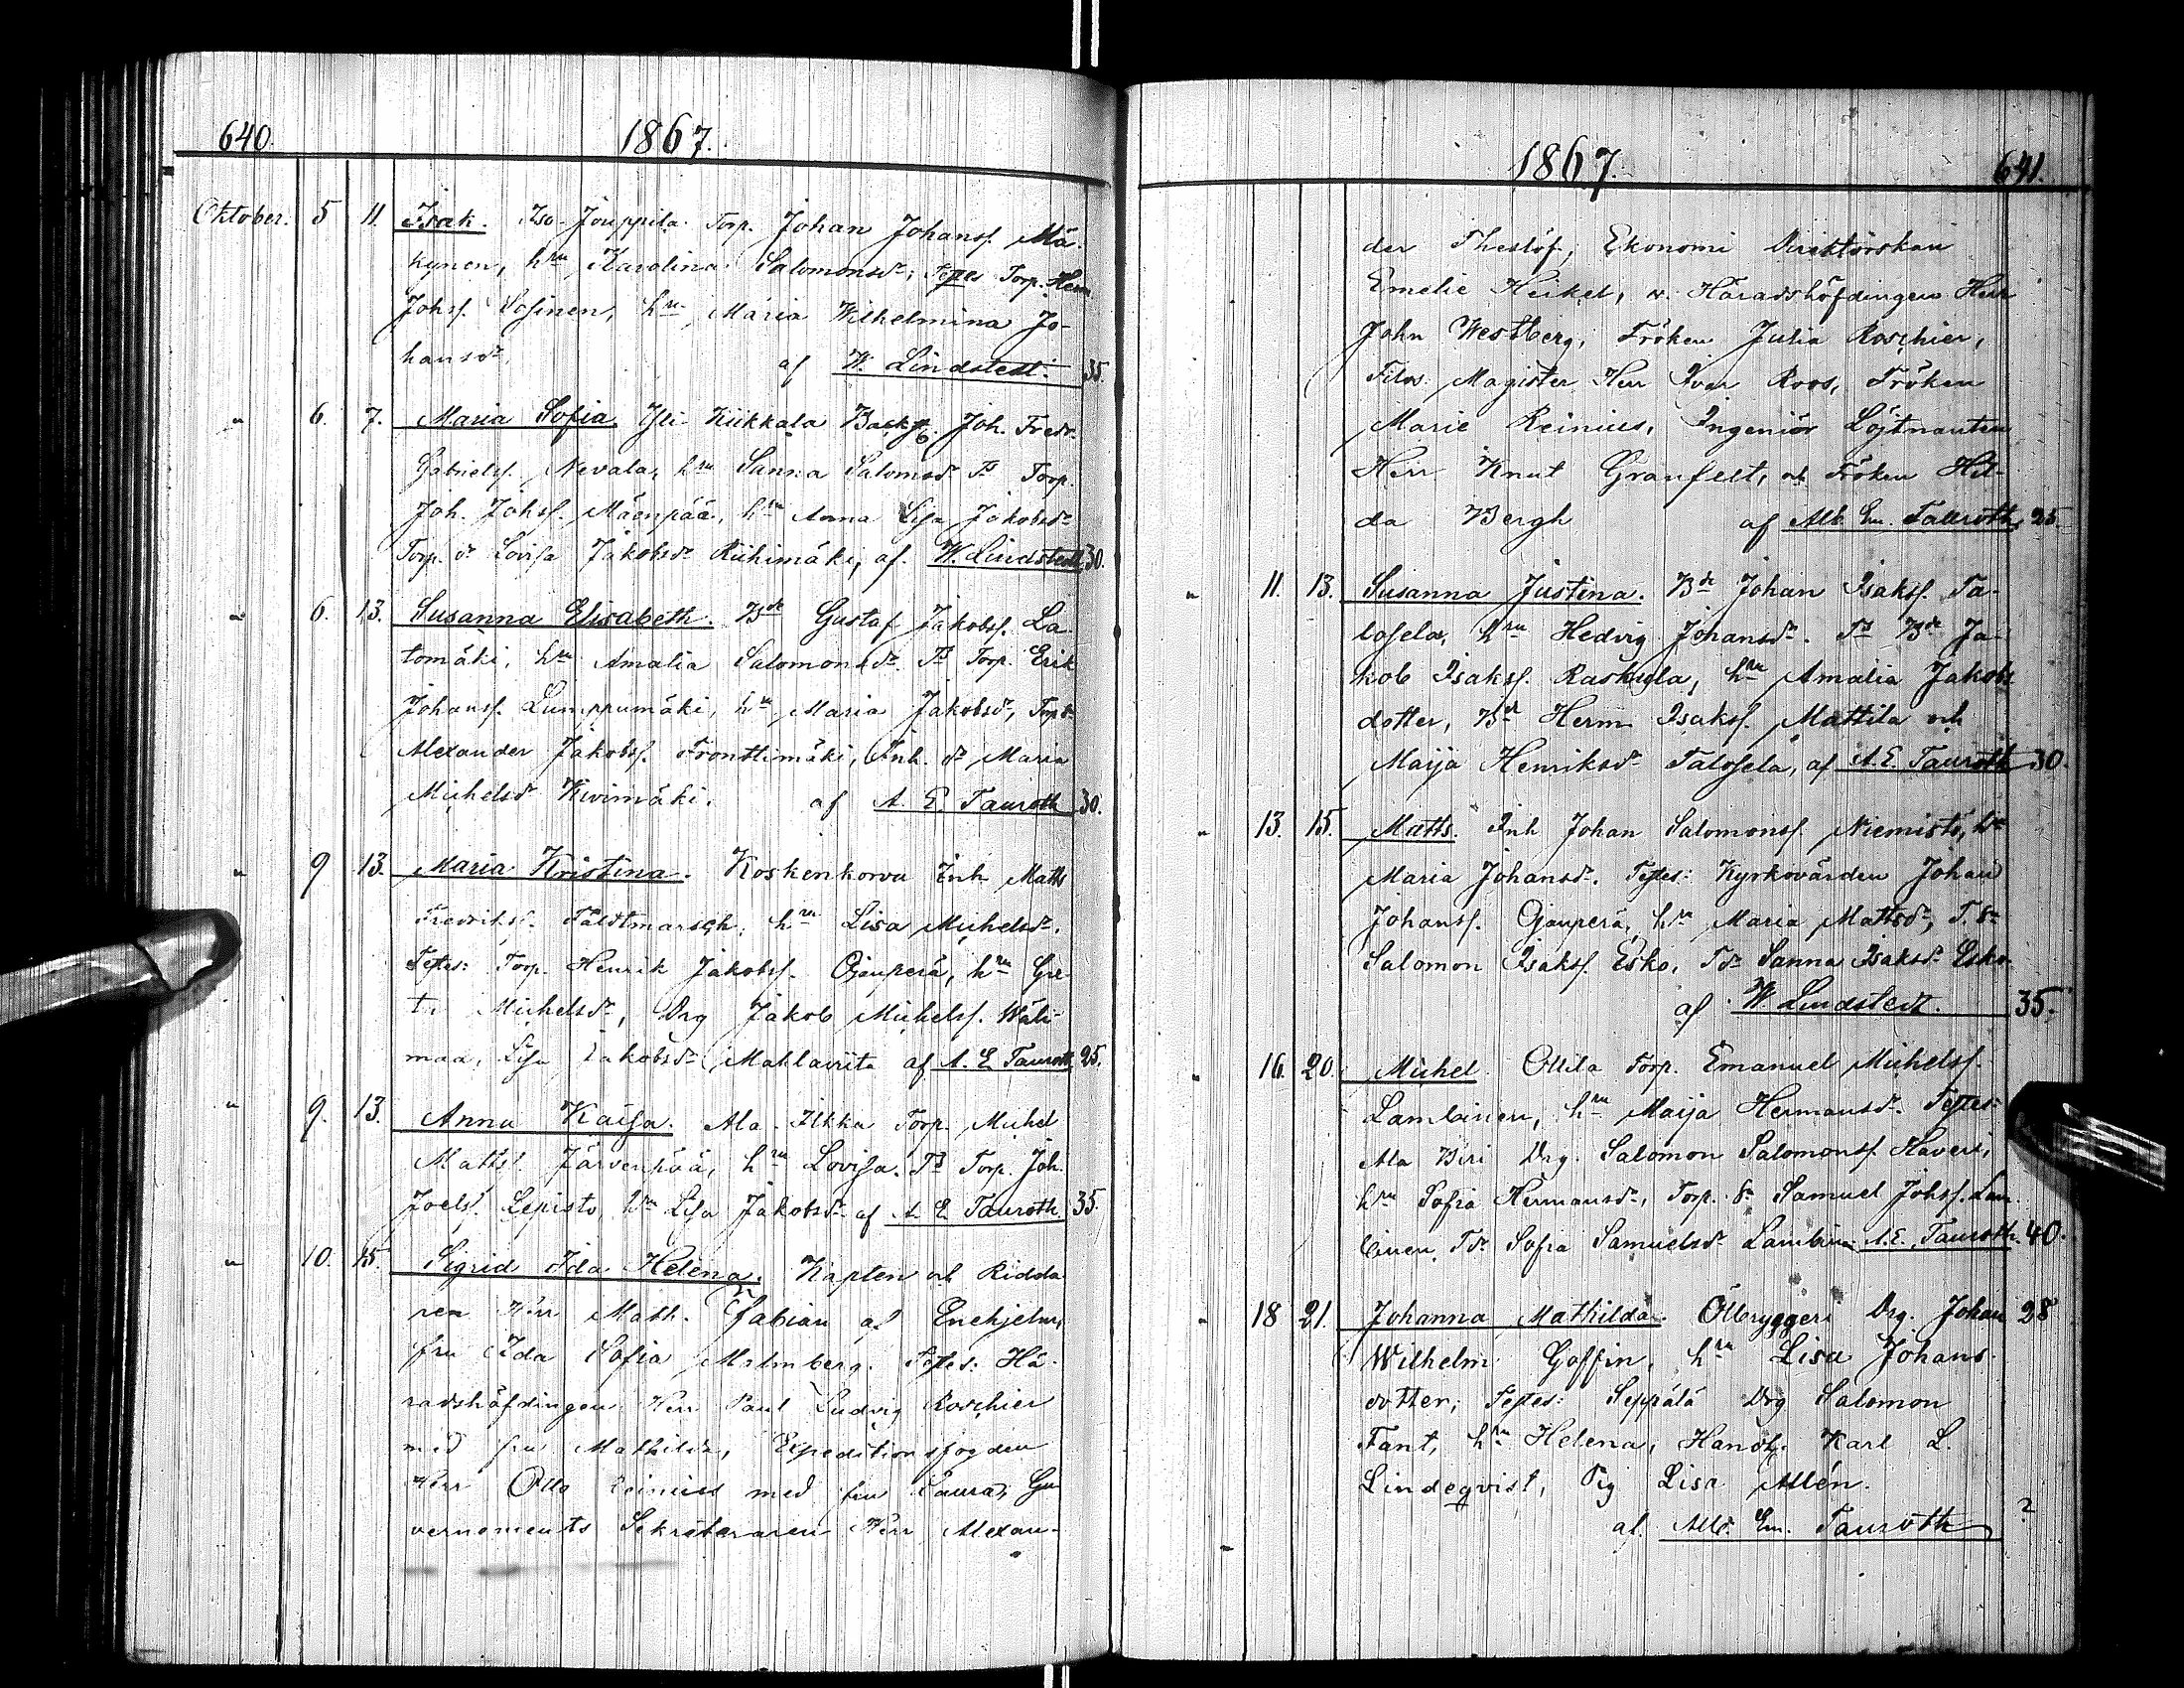 640. 1867.
Oktober. 5 11. Isak. Iso-Jouppila Torp. Johan Johanss. Mä-
kynen, hru Karolina Salomonsdr, Testes Torp. Herm.
Johss. hru Maria Wilhelmina Jo-
hansdr. af W. Lindstedt. 35.
" 6. 7. Maria Sofia. Yli Kiikkala Joh. Fredr.
Gabrielss. Nevala, hru Sanna Salomsdr Ts Torp.
Joh. Johss. Mäenpää, hru Anna Lisa Jakobsdr
Torp. dr Lovisa Jakobsdr Riihimäki, af. W. Lindstedt 30.
" 6. 13. Susanna Elisabeth. Bde Gustaf Jakobss. La-
tomäki, hru Amalia Salomonsdr. Ts Torp. Erik
Johanss. Lumppumäki, hru Maria Jakobsdr, Torp.
Alexander Jakobss. Fronttimäki, Inh. dr Maria
Michelsdr Kivimäki. af A. E. Tauroth 30.
" 9 13. Maria Kristina. Koskenkorva Inh. Matts
Fredrikss. Fältmarsch, hru Lisa Michelsdr.
Testes: Torp. Henrik Jakobss. Ojanperä, hru Gre-
ta Michelsdr, Drg Jakob Michelss. Wäli-
maa, Lisa Jakobsdr Mahlavrita af A. E. Tauroth 25.
" 9. 13. Anna Kaisa. Ala-Ilkka Torp. Michel
Mattss. Järvenpää, hru Lovisa. Ts Torp. Joh.
Joelss. Lepisto, hru Lisa Jakobsdr af A. E. Tauroth. 35.
" 10. 15. Sigrid Ida Helena. Kapten och Ridda-
ren Herr Math. Fabian af Enehjelm,
fru Ida Sofia Malmberg. Testes: Hä-
radshöfdingen Herr Paul Ludvig Roschier
med fru Mathilda, Expeditionsfogden
Herr Otto Reinius med fru Laura, Gu
vernements Sekreteraren Herr Alexan-
1867. 641.
der Theslöf, Ekonomi Direktörskan
Emelie Heikel, v. Häradshöfdingen Herr
John Westberg, Fröken Julia Roschier,
Filos. Magister Herr Ivar Roos, Fröken
Marie Reinius, Ingeniör Löjtnanten
Herr Knut Granfelt, och Fröken Hil-
da Bergh af Alb. Em. Tauroth. 25.
" 11. 13. Susanna Justina. Bde Johan Isakss. Ta-
losela, hru Hedvig Johansdr. Ts Bde Ja-
kob Isakss. Raskula, hru Amalia Jakobs-
dotter, Bde Herm. Isakss. Mattila och
Maija Henriksdr Talosela, af A. E. Tauroth 30.
" 13. 15. Matts. Inh Johan Salomonss. Niemistö, hru
Maria Johansdr. Testes: Kyrkovärden Johan
Johanss. Ojanperä, hru Maria Mattsdr, T. Sn
Salomon Isakss. Esko, Tdr Sanna Isaksdr Esko.
af W. Lindstedt. 35.
" 16. 20. Michel. Ollila Torp. Emanuel Michelss.
Lambinen, hru Maija Hermansdr. Testes:
Ala Biri Drg. Salomon Salomonss. Haveri,
hru Sofia Hermansdr, Torp. Sn Samuel Johss. Lam-
binen, Tdr Sofia Samuelsdr Lambin. A. E. Tauroth. 40.
" 18 21. Johanna Mathilda. Ölbryggeri Drg. Johan 28
Wilhelm Goffin, hru Lisa Johans-
dotter; Testes: Seppälä Drg Salomon
Fant, hru Helena, Handl. Karl L.
Lindeqvist, Pig Lisa Allén.
af. Alb. Em. Tauroth ?